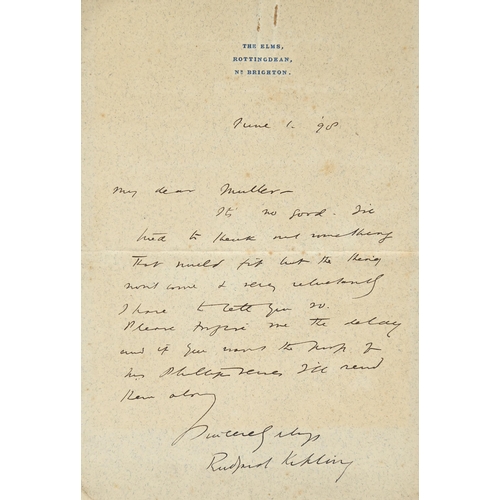 THE ELMS,
ROTTINGDEAN,
Nr BRIGHTON.
June 1. '98
My dear Muller -
It's no good. I've
tried to think out something
that would fit but the thing
won't come & very reluctantly
I have to tell you so.
Please forgive me the delay
and if you want the proofs of
his Phillips verses I'll send
them along
Sincerely yrs
Rudyard Kipling